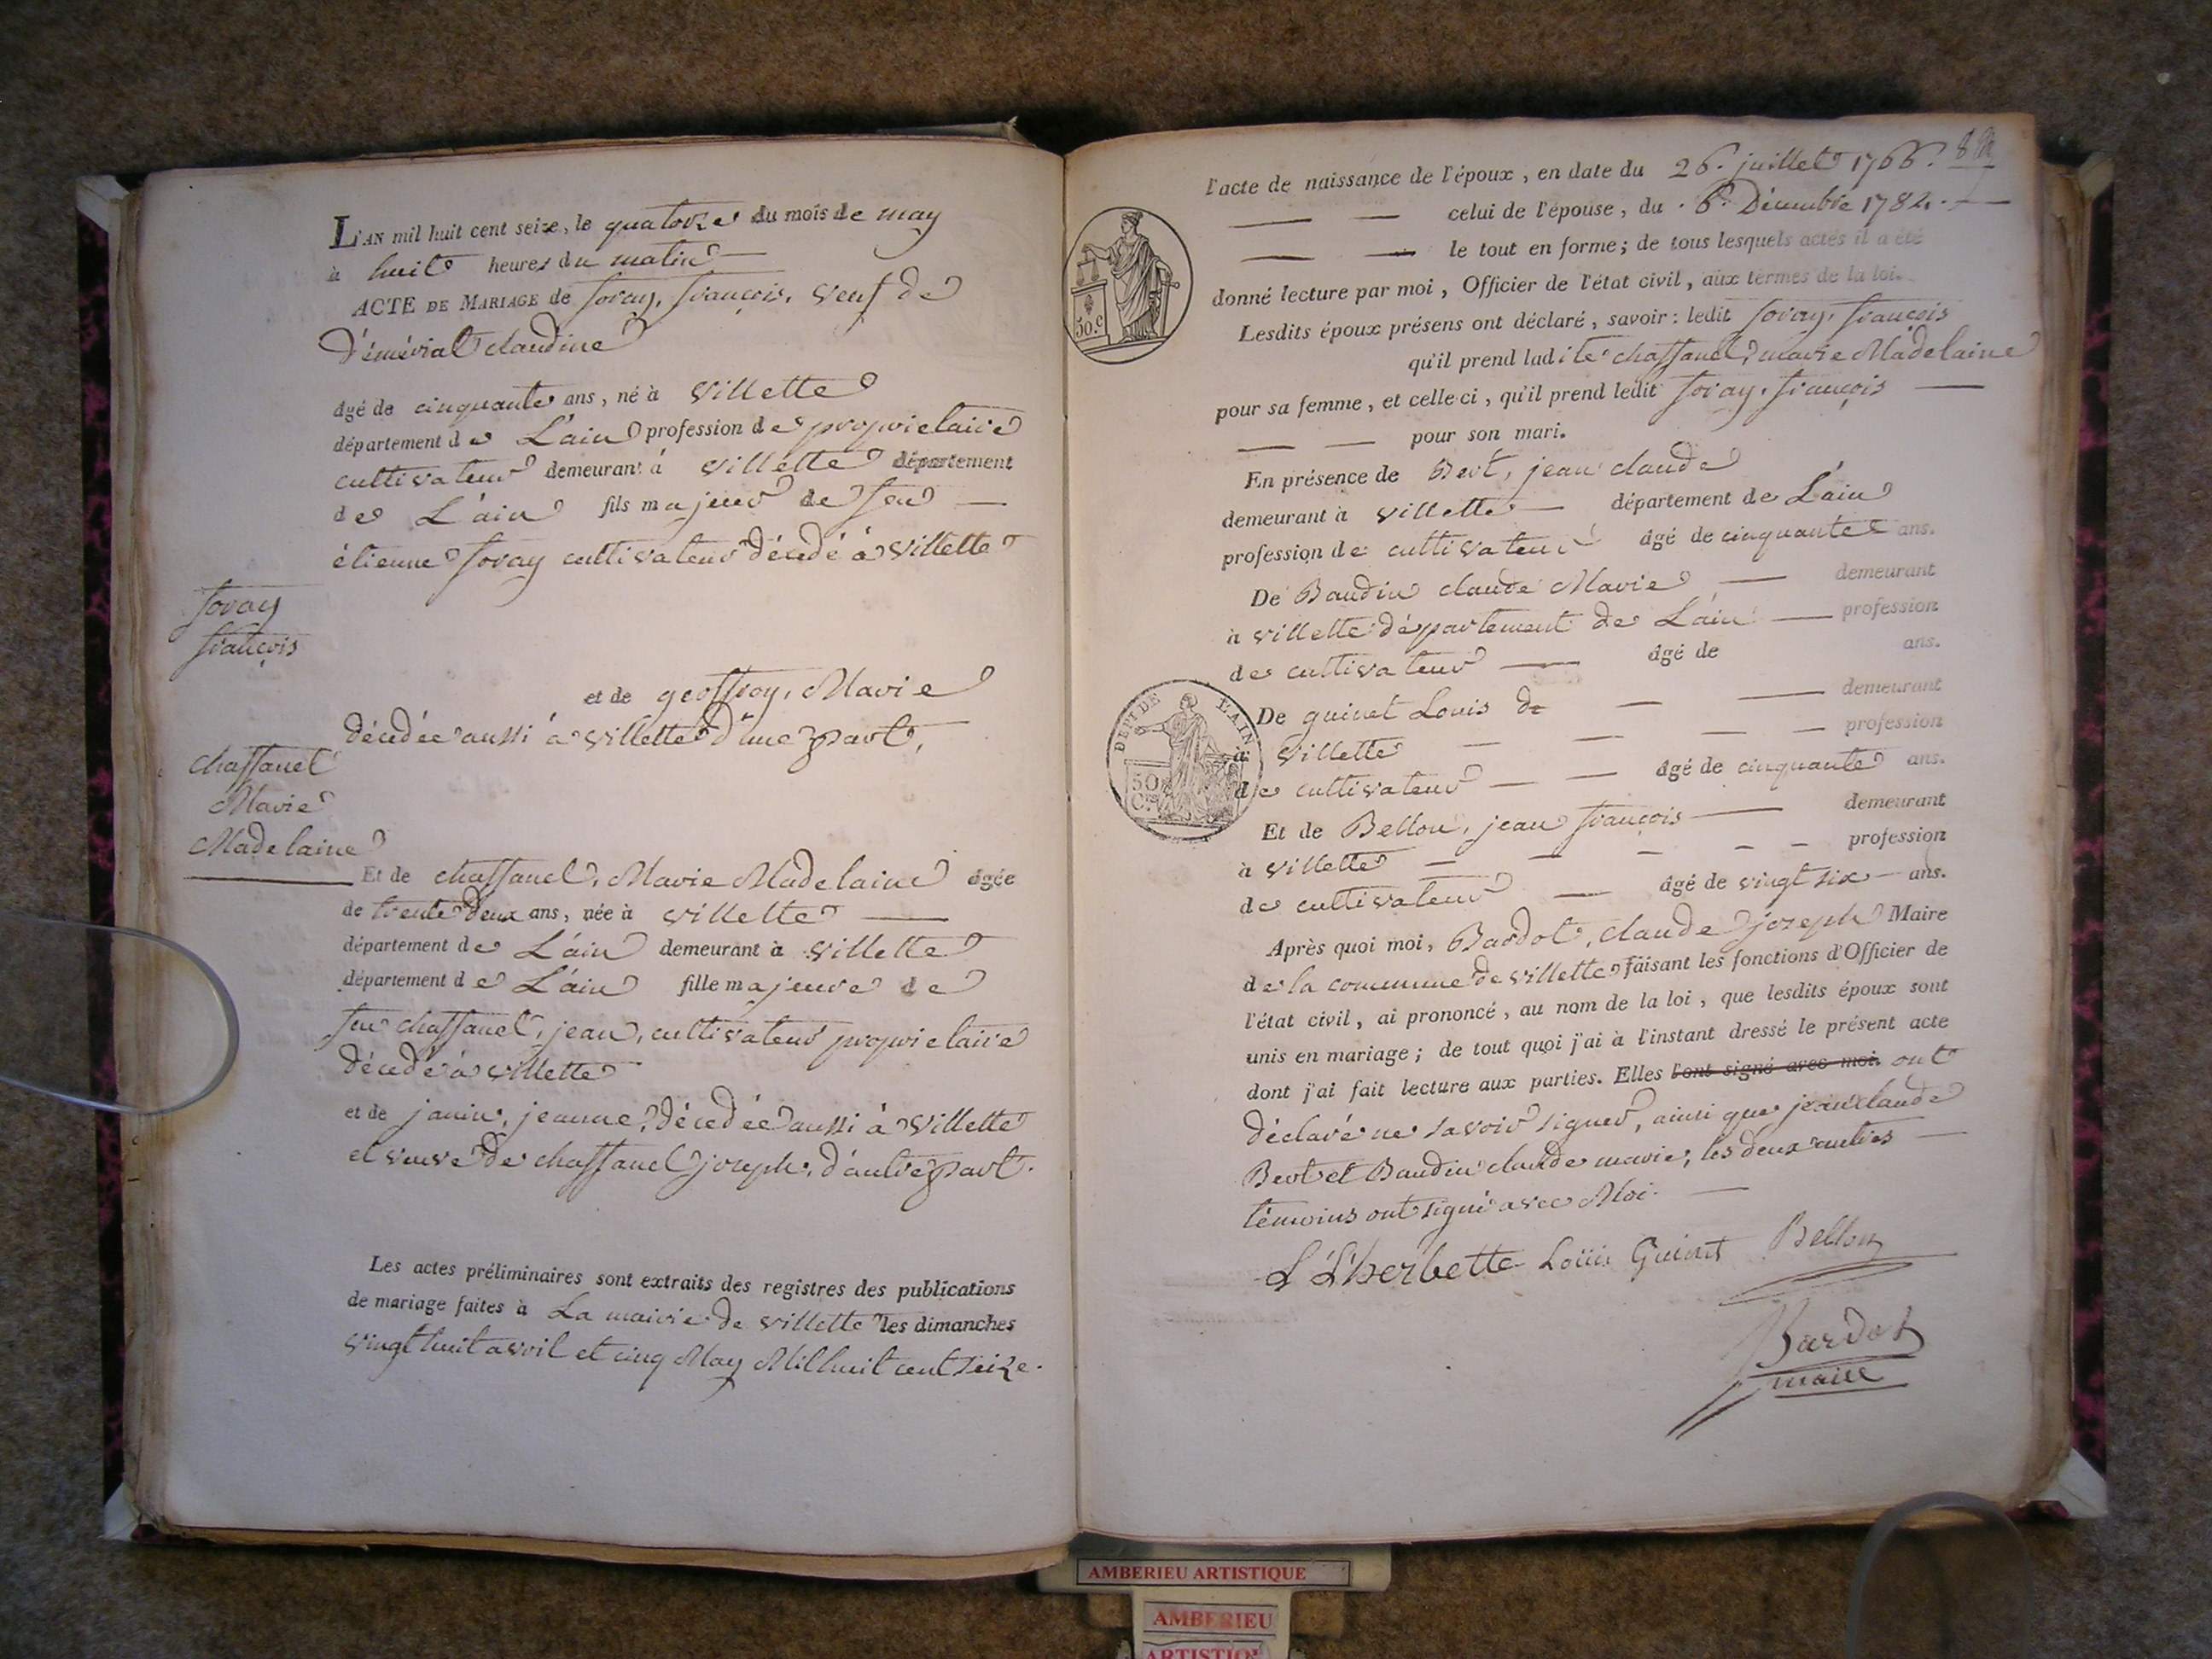 L'AN mil huit cent seize, le quatorze du mois de may
à huit heures du matin
ACTE DE MARIAGE de foray, françois, veuf de
Démérial claudine
âgé de cinquante ans, né à villette
département de L'ain profession de proprietaire
cultivateur demeurant à villette département
de L'ain fils majeur de feu
étienne foray cultivateur décedé à villette
foray
françois
et de geoffroy, Marie
décedée aussi à villette d'une part,
chaffanel
Marie
Madelaine
Et de chaffanel, Marie Madelaine âgée
de trente deux ans, née à villette
département de L'ain demeurant à villette
département de L'ain fille majeure de
feu chaffanel, jean, cultivateur proprietaire
décedé à villette
et de janin, jeanne, décedée aussi à villette
et veuve de chaffanel joseph, d'autre part.
Les actes préliminaires sont extraits des registres des publications
de mariage faites à La mairie de villette les dimanches
vingt huit avril et cinq May Mil huit cent seize.
l'acte de naissance de l'époux, en date du 26. juillet 1766.
celui de l'épouse, du 6. Décembre 1782.
le tout en forme; de tous lesquels actes il a été
donné lecture par moi, Officier de l'état civil, aux termes de la loi.
Lesdits époux présens ont déclaré, savoir: ledit foray, françois
qu'il prend ladite chaffanel, marie Madelaine
pour sa femme, et celle-ci, qu'il prend ledit foray, françois
pour son mari.
50.c
En présence de Bert, jean claude
demeurant à villette département de L'ain
profession de cultivateur âgé de cinquante ans.
De Baudin claude Marie demeurant
à villette département de L'ain profession
de cultivateur âgé de ans.
De guinet Louis de demeurant
à villette profession
de cultivateur âgé de cinquante ans.
DEPT DE L'AIN
50
C.es
Et de Bellon, jean françois demeurant
à villette profession
de cultivateur âgé de vingt six ans.
Après quoi moi, Bardot, claude joseph Maire
de la commune de villette faisant les fonctions d'Officier de
l'état civil, ai prononcé, au nom de la loi, que lesdits époux sont
unis en mariage; de tout quoi j'ai à l'instant dressé le présent acte
dont j'ai fait lecture aux parties. Elles l'ont signé avec moi. ont
déclaré ne savoir signer, ainsi que jean claude
Bert et Baudin claude marie, les deux autres
témoins ont signé avec Moi.
L L'herbette Loüis Guinet Bellon
Bardot
maire
AMBERIEU ARTISTIQUE
AMBERIEU
ARTISTIQUE